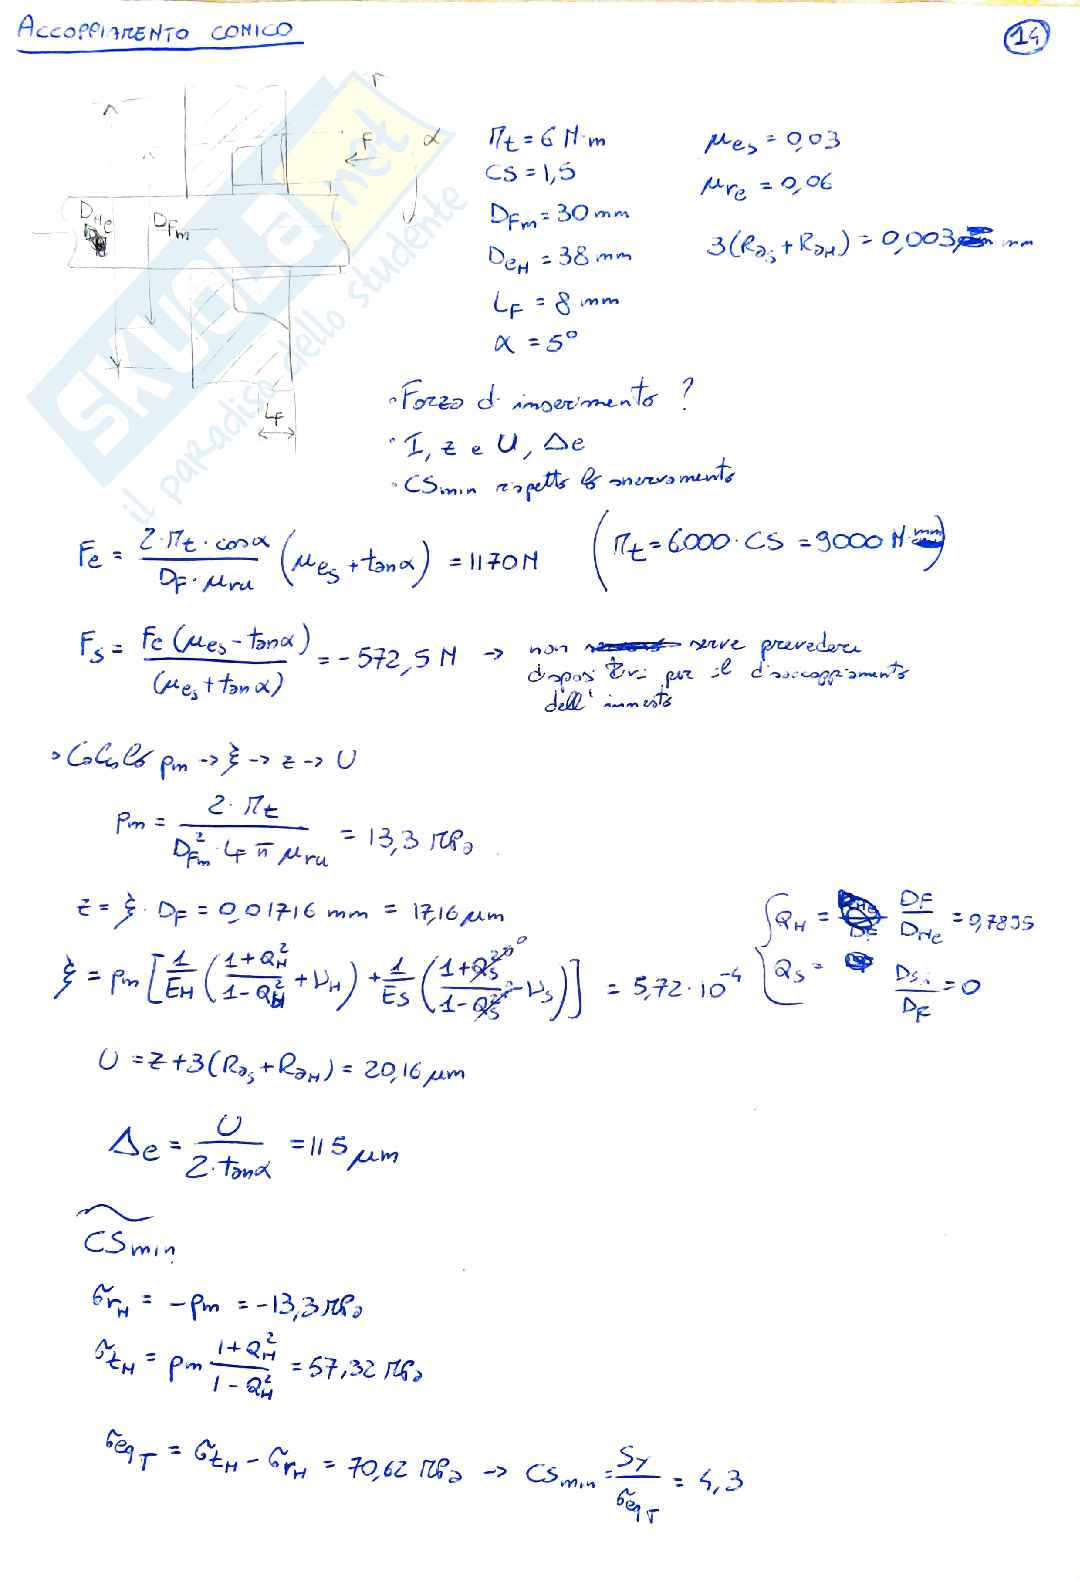 ACCOPPIAMENTO CONICO
14
F
α
D_He
D_Fm
L_F
SKUOLA.net
il paradiso dello studente
M_t = 6 N·m
CS = 1,5
D_Fm = 30 mm
D_eH = 38 mm
L_F = 8 mm
α = 5°
μ_es = 0,03
μ_re = 0,06
3(R_as + R_aH) = 0,003 mm
· Forza di inserimento ?
· I, z e U, Δe
· CS_min rispetto lo snervamento
F_e = 2·M_t·cosα / (D_F·μ_ru) (μ_es + tanα) = 1170 N
(M_t = 6000·CS = 9000 N·mm)
F_s = F_e (μ_es - tanα) / (μ_es + tanα) = -572,5 N → non serve prevedere
dispositivi per il disaccoppiamento
dell'innesto
> Calcolo p_m → ξ → z → U
p_m = 2·M_t / (D_Fm² · L_F π μ_ru) = 13,3 MPa
z = ξ · D_F = 0,01716 mm = 17,16 μm
ξ = p_m [1/E_H ((1+Q_H²)/(1-Q_H²) + ν_H) + 1/E_S ((1+Q_S²)/(1-Q_S²) - ν_S)] = 5,72·10⁻⁴
Q_H = D_F / D_He = 0,7895
Q_S = D_Si / D_F = 0
U = z + 3(R_as + R_aH) = 20,16 μm
Δe = U / (2·tanα) = 115 μm
CS_min
σ_rH = -p_m = -13,3 MPa
σ_tH = p_m (1+Q_H²)/(1-Q_H²) = 57,32 MPa
σ_eqT = σ_tH - σ_rH = 70,62 MPa → CS_min = S_y / σ_eqT = 4,3